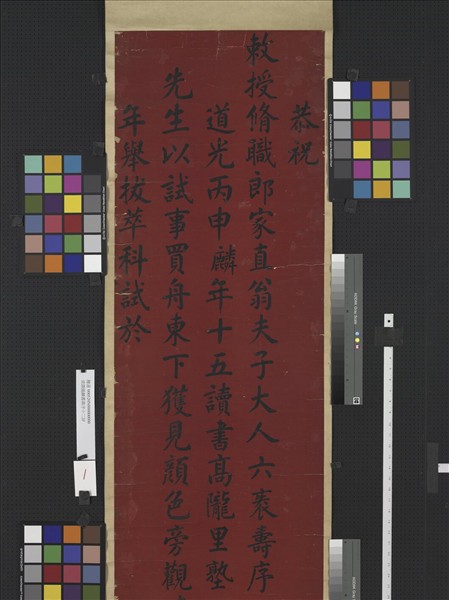 恭祝
敕授脩職郎家直翁夫子大人六袠壽序
道光丙申麟年十五讀書高隴里塾
先生以試事買舟東下獲見顏色旁觀
年舉拔萃科試於
1